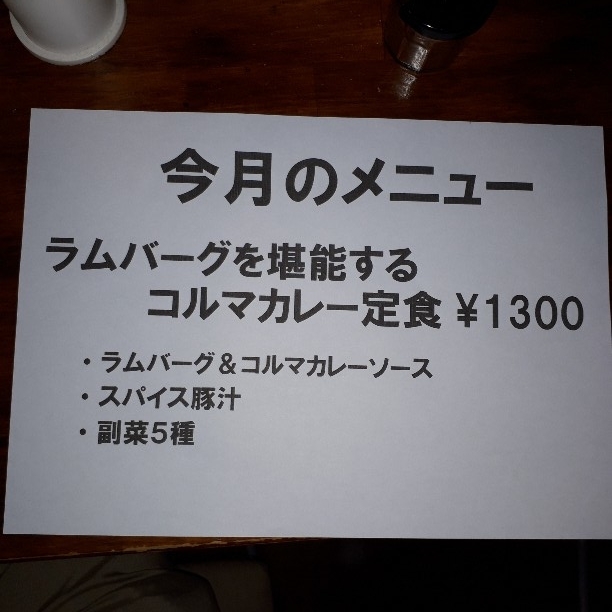 今月のメニュー
ラムバーグを堪能する
コルマカレー定食 ¥1300
・ラムバーグ&コルマカレーソース
・スパイス豚汁
・副菜5種